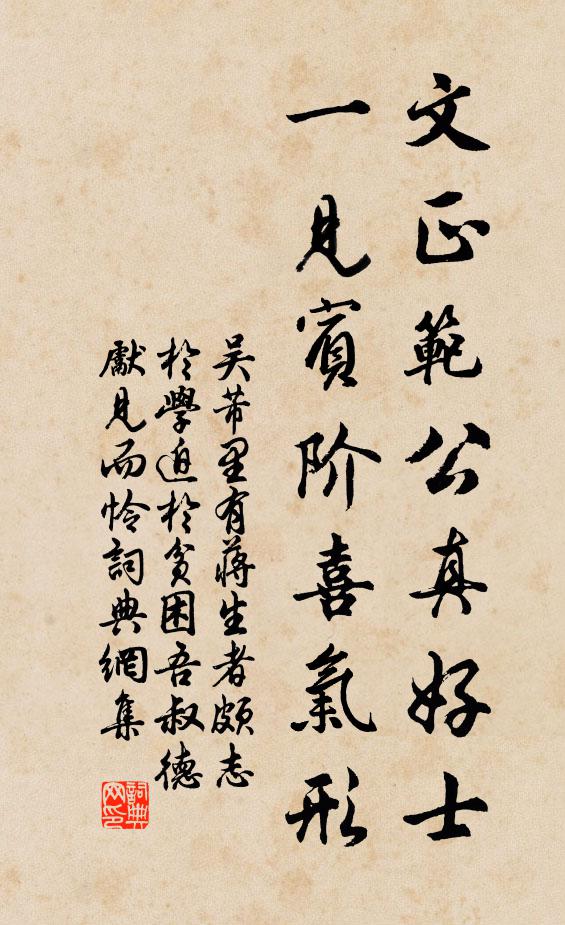 文正範公真好士
一見賓阶喜氣形
吴芾里有蔣生者頗志
於學迫於貧困吾叔德
獻見而怜詞典網集
詞典
网印